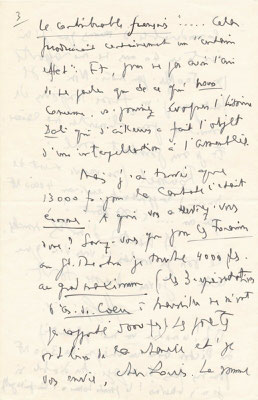 3
le contribuable français"..... Cela
produirait certainement un "certain
effet". Et, pour ne pas avoir l'air
de ne parler que de ce qui nous
concerne, vous pouvez évoquer l'histoire
Dali qui d'ailleurs a fait l'objet
d'une interpellation à l'assemblée
Mais j'ai trouvé que
13000 fs. pour la Cantate c'était
énorme. A qui vous adressez-vous
donc? Savez-vous que pour
au je touche 4000 frs.
au grand maximum (les 3 représentations
d' à Marseille ne m'ont
pas rapporté 5000 frs) Les
ont bien de la chance et je
vous envie, cher Louis. La somme